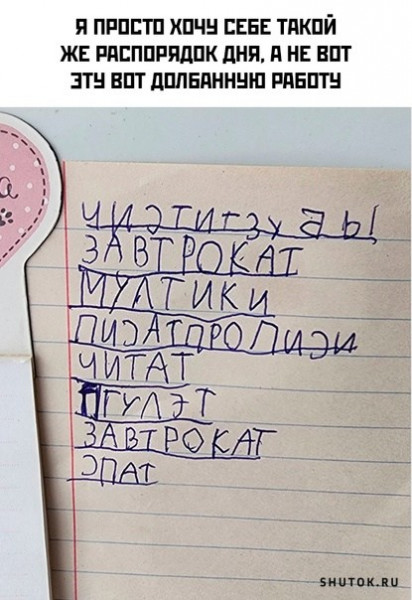 Я ПРОСТО ХОЧУ СЕБЕ ТАКОЙ
ЖЕ РАСПОРЯДОК ДНЯ, А НЕ ВОТ
ЭТУ ВОТ ДОЛБАННУЮ РАБОТУ
а
ЧИЭТИТЗУБЫ
ЗАВТРОКАТ
МУЛТИКИ
ПИЭАТПРОПИЭИ
ЧИТАТ
ПГУЛЭТ
ЗАВТРОКАТ
ЭПАТ
SHUTOK.RU